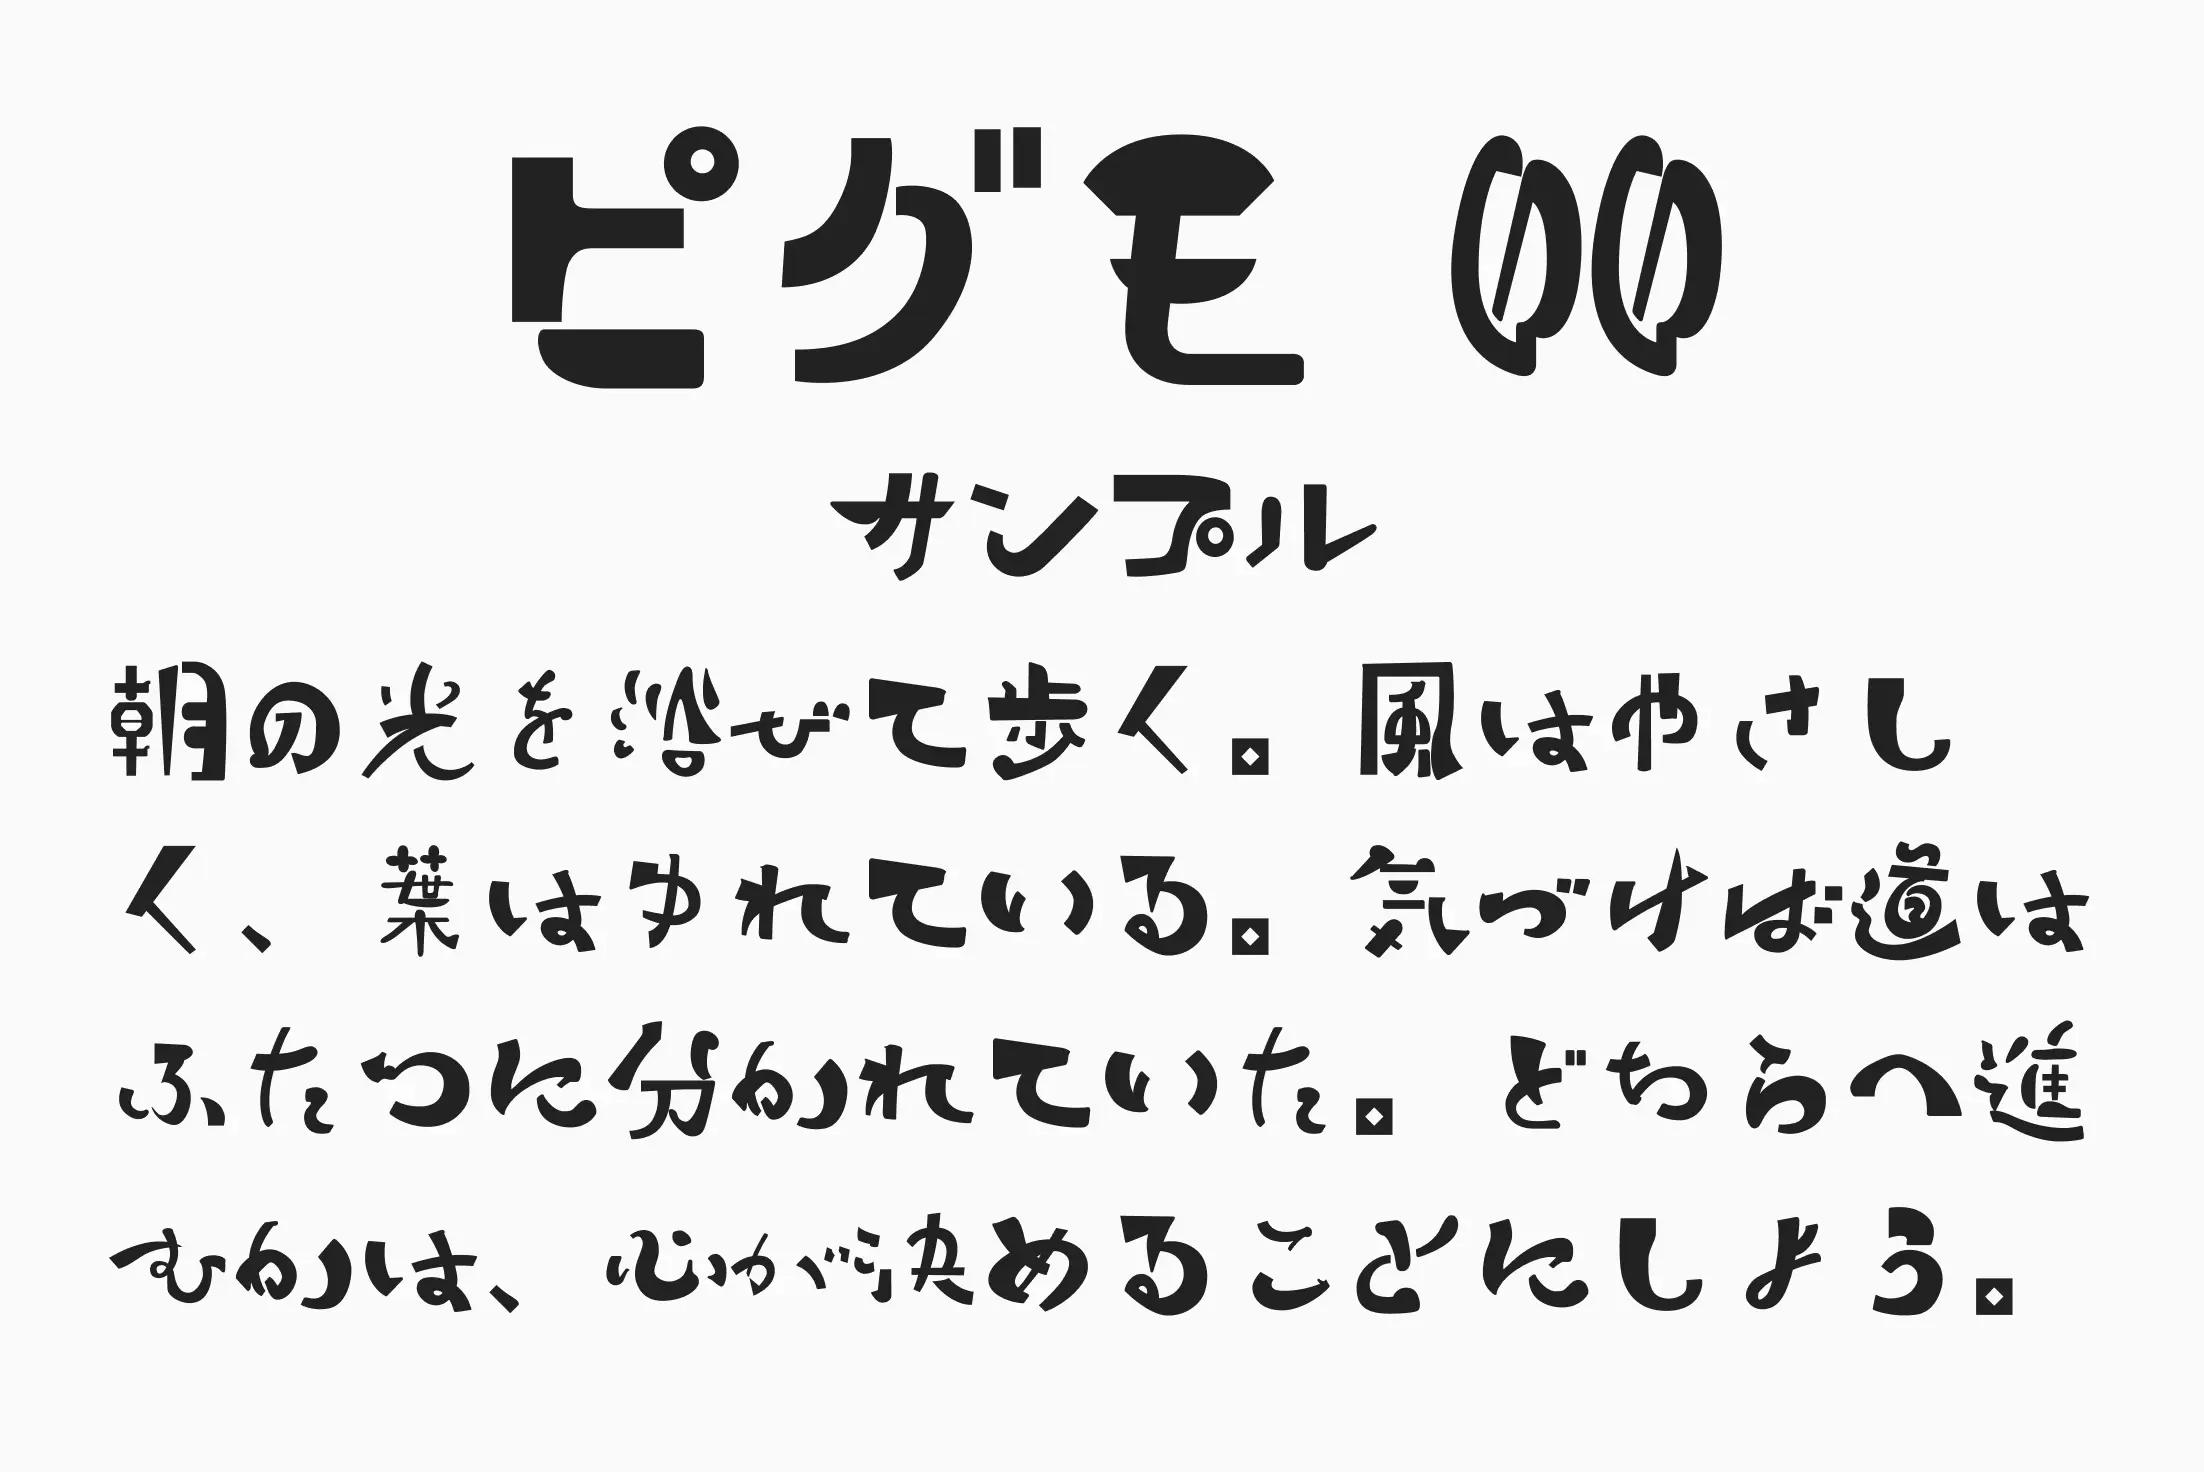 ピグモ 00
サンプル
朝の光を浴びて歩く。風はやさし
く、葉はゆれている。気づけば道は
ふたつに分かれていた。どちらへ進
むかは、心が決めることにしよう。